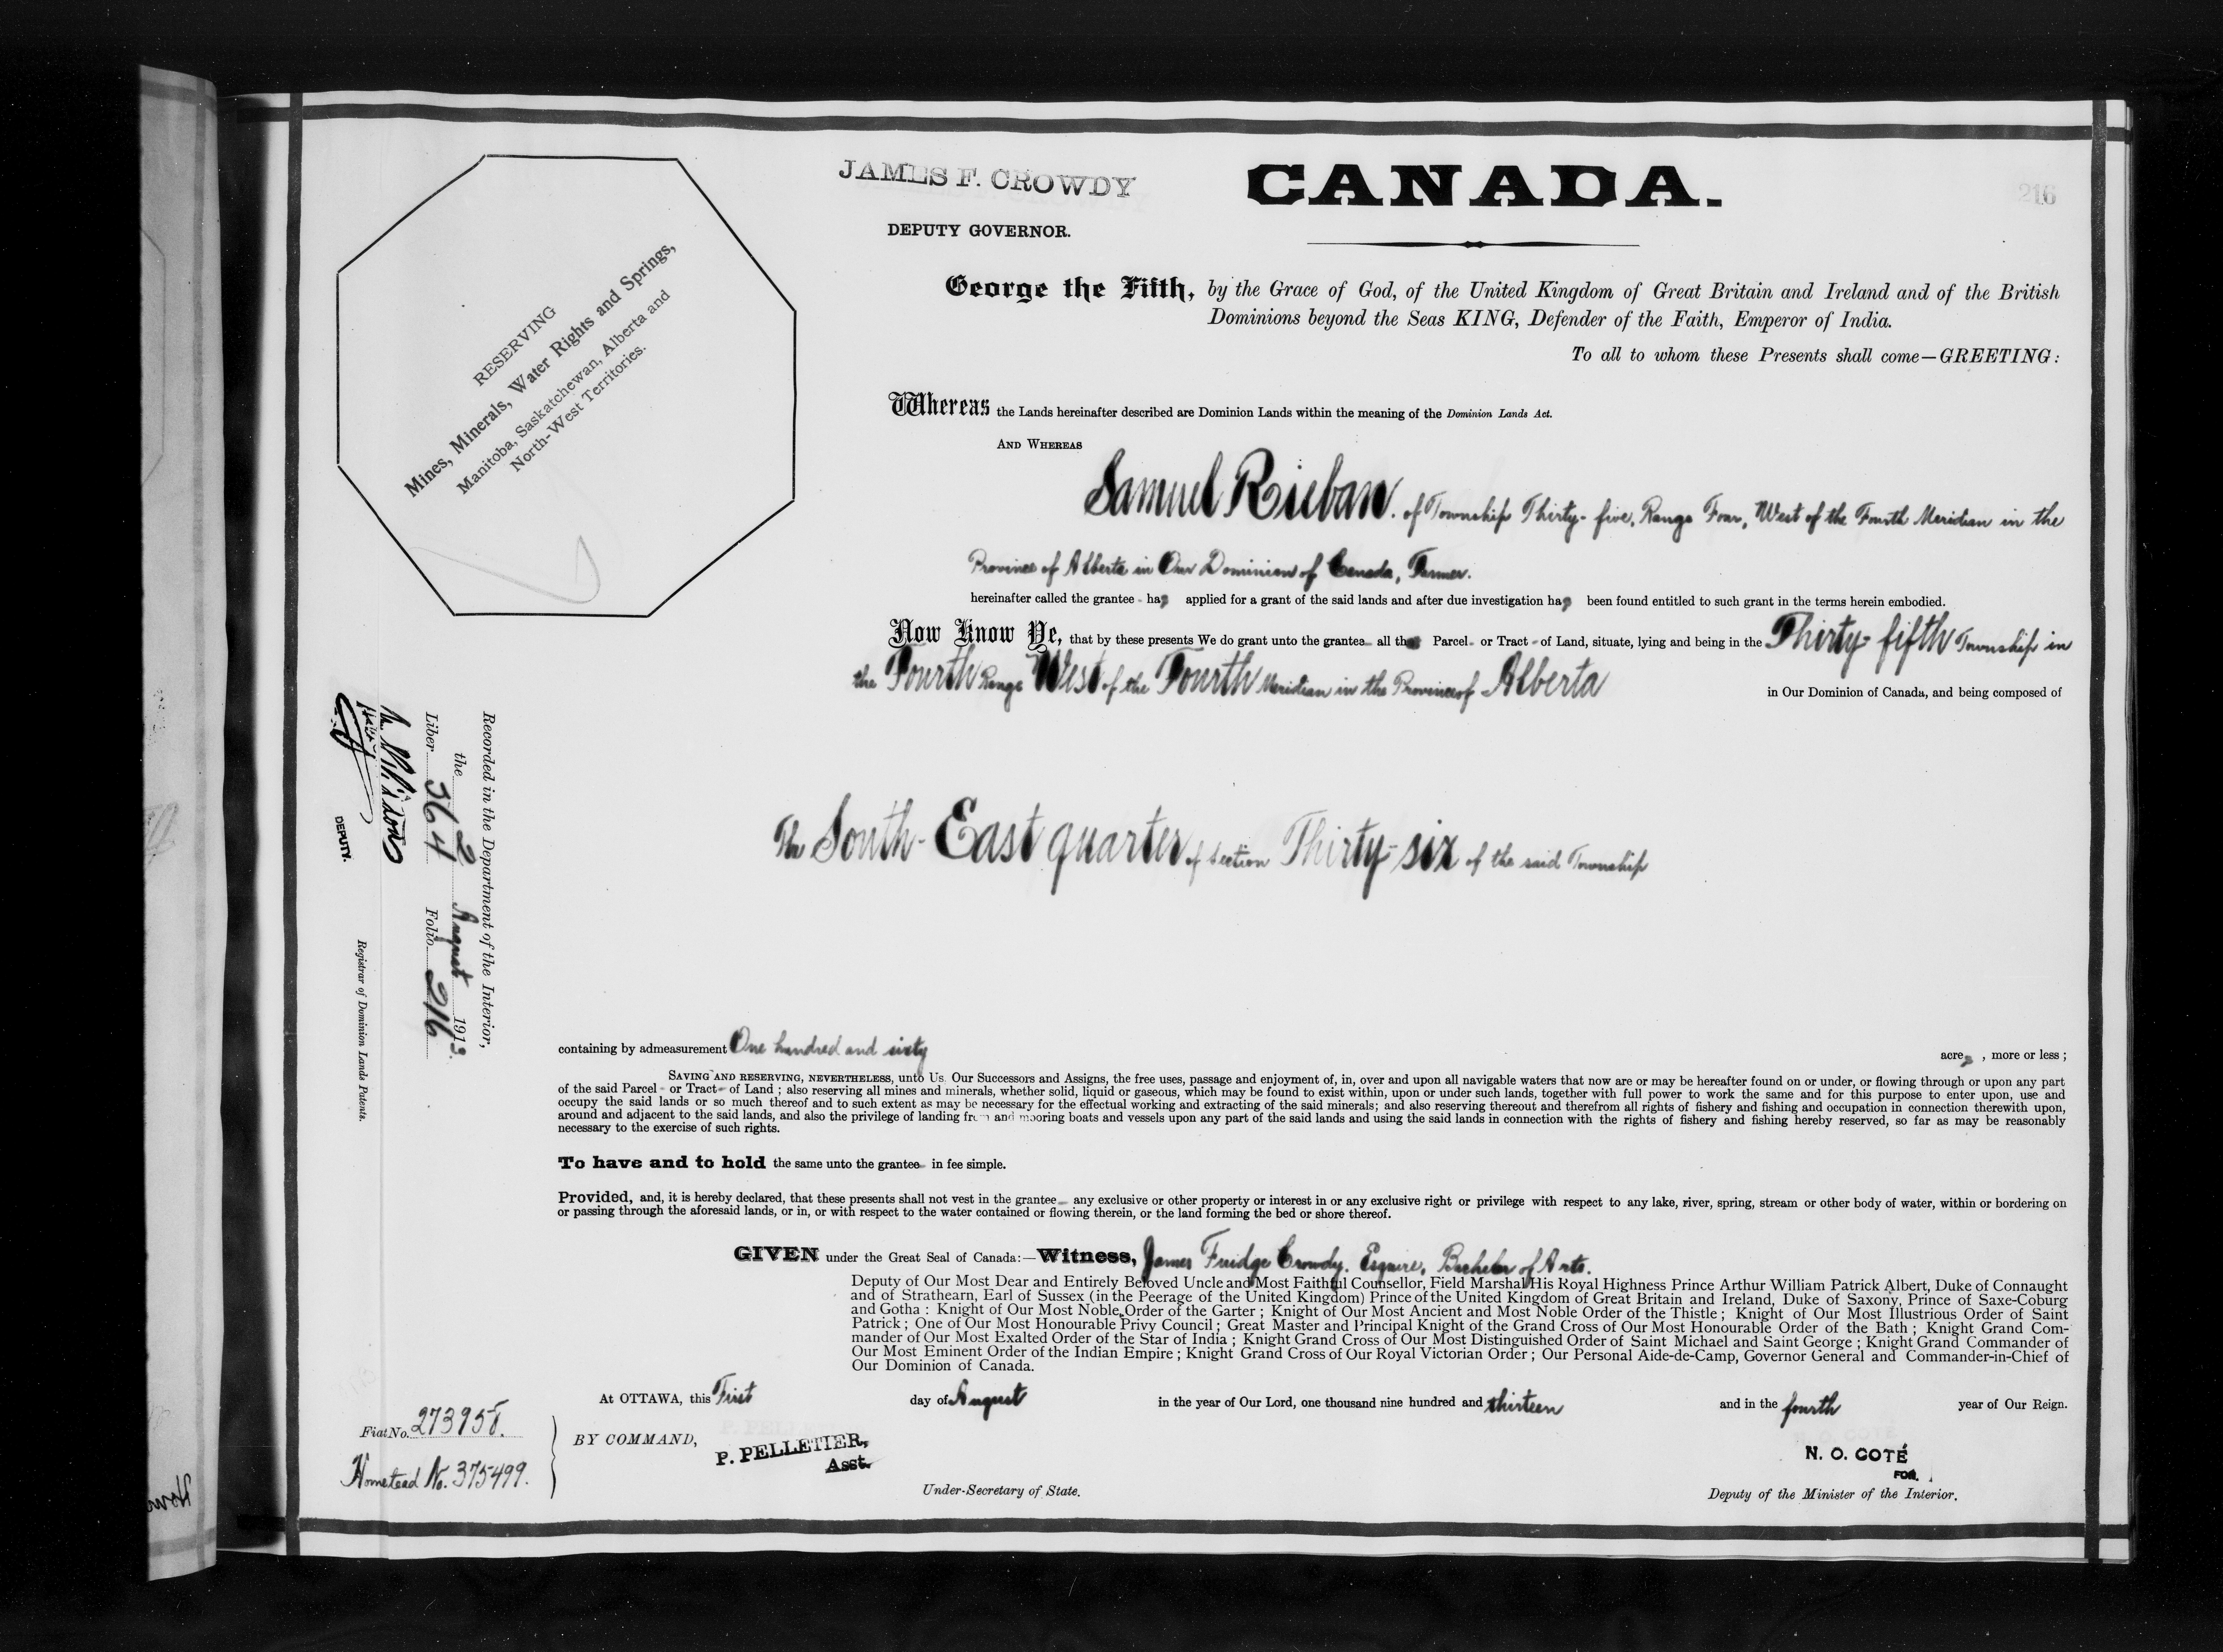 JAMES F. CROWDY
DEPUTY GOVERNOR.
CANADA.
216
RESERVING
Mines, Minerals, Water Rights and Springs,
Manitoba, Saskatchewan, Alberta and
North-West Territories.
George the Fifth, by the Grace of God, of the United Kingdom of Great Britain and Ireland and of the British
Dominions beyond the Seas KING, Defender of the Faith, Emperor of India.
To all to whom these Presents shall come—GREETING:
Whereas the Lands hereinafter described are Dominion Lands within the meaning of the Dominion Lands Act.
AND WHEREAS
Samuel Rieban. of Township Thirty-five, Range Four, West of the Fourth Meridian in the
Province of Alberta in Our Dominion of Canada, Farmer.
hereinafter called the grantee - has applied for a grant of the said lands and after due investigation has been found entitled to such grant in the terms herein embodied.
Now Know Ye, that by these presents We do grant unto the grantee all that Parcel or Tract of Land, situate, lying and being in the Thirty-fifth Township in
the Fourth Range West of the Fourth Meridian in the Province of Alberta in Our Dominion of Canada, and being composed of
The South-East quarter of Section Thirty-six of the said Township
containing by admeasurement One hundred and sixty acres, more or less;
SAVING AND RESERVING, NEVERTHELESS, unto Us Our Successors and Assigns, the free uses, passage and enjoyment of, in, over and upon all navigable waters that now are or may be hereafter found on or under, or flowing through or upon any part
of the said Parcel - or Tract - of Land; also reserving all mines and minerals, whether solid, liquid or gaseous, which may be found to exist within, upon or under such lands, together with full power to work the same and for this purpose to enter upon, use and
occupy the said lands or so much thereof and to such extent as may be necessary for the effectual working and extracting of the said minerals; and also reserving thereout and therefrom all rights of fishery and fishing and occupation in connection therewith upon,
around and adjacent to the said lands, and also the privilege of landing from and mooring boats and vessels upon any part of the said lands and using the said lands in connection with the rights of fishery and fishing hereby reserved, so far as may be reasonably
necessary to the exercise of such rights.
To have and to hold the same unto the grantee in fee simple.
Provided, and, it is hereby declared, that these presents shall not vest in the grantee any exclusive or other property or interest in or any exclusive right or privilege with respect to any lake, river, spring, stream or other body of water, within or bordering on
or passing through the aforesaid lands, or in, or with respect to the water contained or flowing therein, or the land forming the bed or shore thereof.
GIVEN under the Great Seal of Canada:—Witness, James Fuidge Crowdy. Esquire, Bachelor of Arts.
Deputy of Our Most Dear and Entirely Beloved Uncle and Most Faithful Counsellor, Field Marshal His Royal Highness Prince Arthur William Patrick Albert, Duke of Connaught
and of Strathearn, Earl of Sussex (in the Peerage of the United Kingdom) Prince of the United Kingdom of Great Britain and Ireland, Duke of Saxony, Prince of Saxe-Coburg
and Gotha: Knight of Our Most Noble Order of the Garter; Knight of Our Most Ancient and Most Noble Order of the Thistle; Knight of Our Most Illustrious Order of Saint
Patrick; One of Our Most Honourable Privy Council; Great Master and Principal Knight of the Grand Cross of Our Most Honourable Order of the Bath; Knight Grand Com-
mander of Our Most Exalted Order of the Star of India; Knight Grand Cross of Our Most Distinguished Order of Saint Michael and Saint George; Knight Grand Commander of
Our Most Eminent Order of the Indian Empire; Knight Grand Cross of Our Royal Victorian Order; Our Personal Aide-de-Camp, Governor General and Commander-in-Chief of
Our Dominion of Canada.
At OTTAWA, this First day of August in the year of Our Lord, one thousand nine hundred and thirteen and in the fourth year of Our Reign.
BY COMMAND,
P. PELLETIER,
Asst.
Under-Secretary of State.
N. O. COTÉ
FOR.
Deputy of the Minister of the Interior.
Fiat No. 273958.
Homestead No. 375499.
Recorded in the Department of the Interior,
the 2 August 1913.
Liber 364 Folio 216
DEPUTY.
Registrar of Dominion Lands Patents.